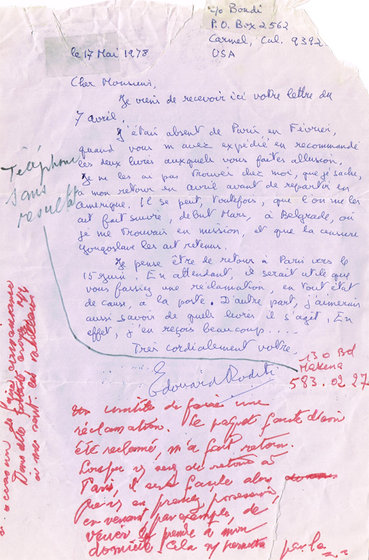 c/o Bondi
P.O. Box 2562
Carmel, Cal. 9392
USA
le 17 Mai 1978
Cher Monsieur,
Je viens de recevoir ici votre lettre du
7 avril.
J'étais absent de Paris, en Février,
quand vous m'avez expédié en recommandé
les deux livres auxquels vous faites allusion.
Je ne les ai pas trouvés chez moi, que je sache,
à mon retour en avril avant de repartir en
Amérique. Il se peut, toutefois, que l'on me les
ait fait suivre, début Mars, à Belgrade, où
je me trouvais en mission, et que la censure
Yougoslave les ait retenus.
Je pense être de retour à Paris vers le
15 juin. En attendant, il serait utile que
vous fassiez une réclamation, en tout état
de cause, à la poste. D'autre part, j'aimerais
aussi savoir de quels livres il s'agit. En
effet, j'en reçois beaucoup....
Très cordialement votre
Edouard Roditi
Téléphone
sans
résultat
130 Bd
583.02.27
inutile de faire une
réclamation. Le paquet faute d'avoir
été réclamé, m'a fait retour.
Lorsque je serai de retour à
Paris, il sera facile alors
en prendre possession,
en venant par exemple, de
venir le prendre à mon
domicile. Cela